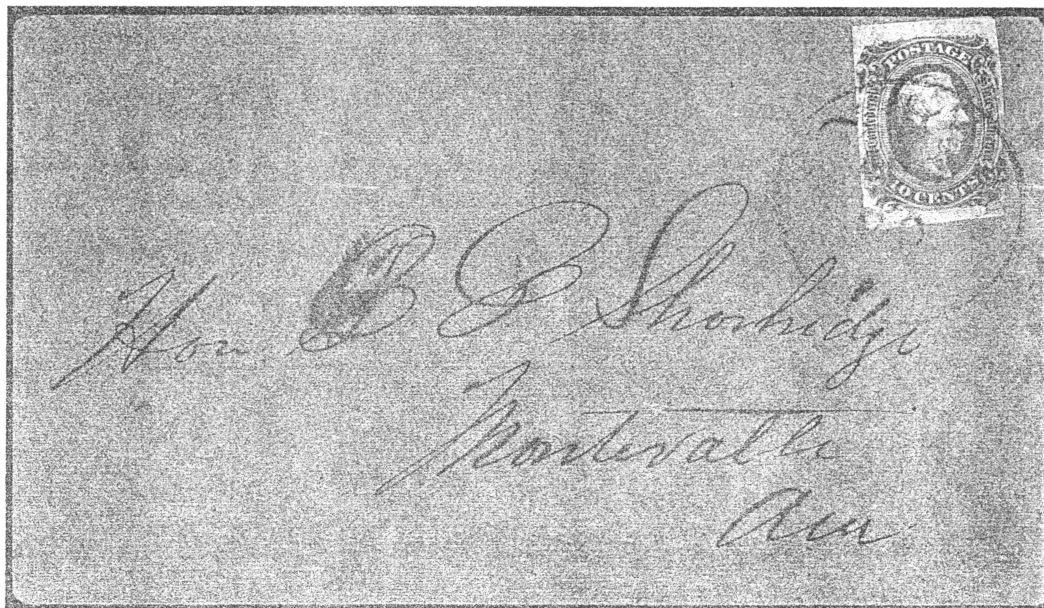 POSTAGE
10 CENTS
Hon. Shortridge
Montevallo
Ala